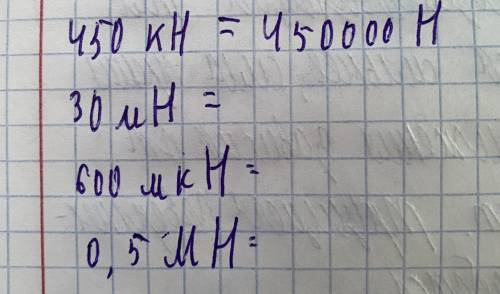 450 кН = 450000 Н
30 мН =
600 мкН =
0,5 МН =